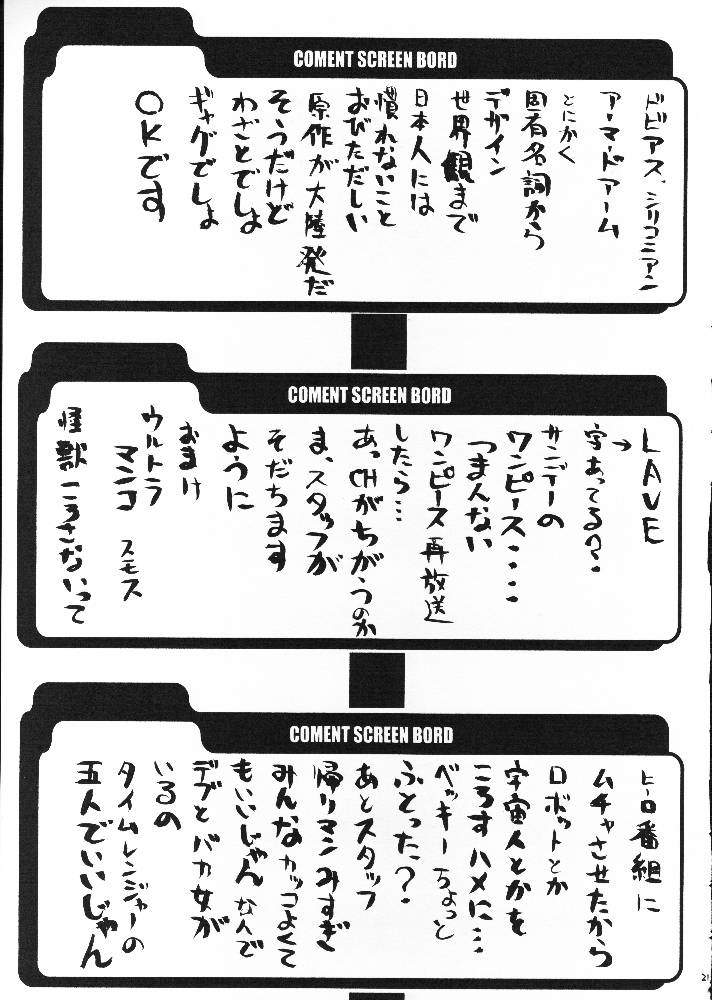 COMENT SCREEN BORD
ドビアス、シリコニアン
アーマードアーム
とにかく
固有名詞から
デザイン
世界観まで
日本人には
慣れないこと
おびただしい
原作が大陸発だ
そうだけど
わざとでしょ
ギャグでしょ
OKです
COMENT SCREEN BORD
LAVE
→字あってる?・
サンデーの
ワンピース・・・・
つまんない
ワンピース再放送
したら…
あっCHがちがうのか
ま、スタッフが
そだちます
ように
おまけ
ウルトラ
マンコスモス
怪獣ころさないって
COMENT SCREEN BORD
ヒーロ番組に
ムチャさせたから
ロボットとか
宇宙人とかを
ころすハメに…
ベッキーちょっと
ふとった?
あとスタッフ
帰リマンみすぎ
みんなカッコよくて
もいいじゃんなんで
デブとバカ女が
いるの
タイムレンジャーの
五人でいいじゃん
21